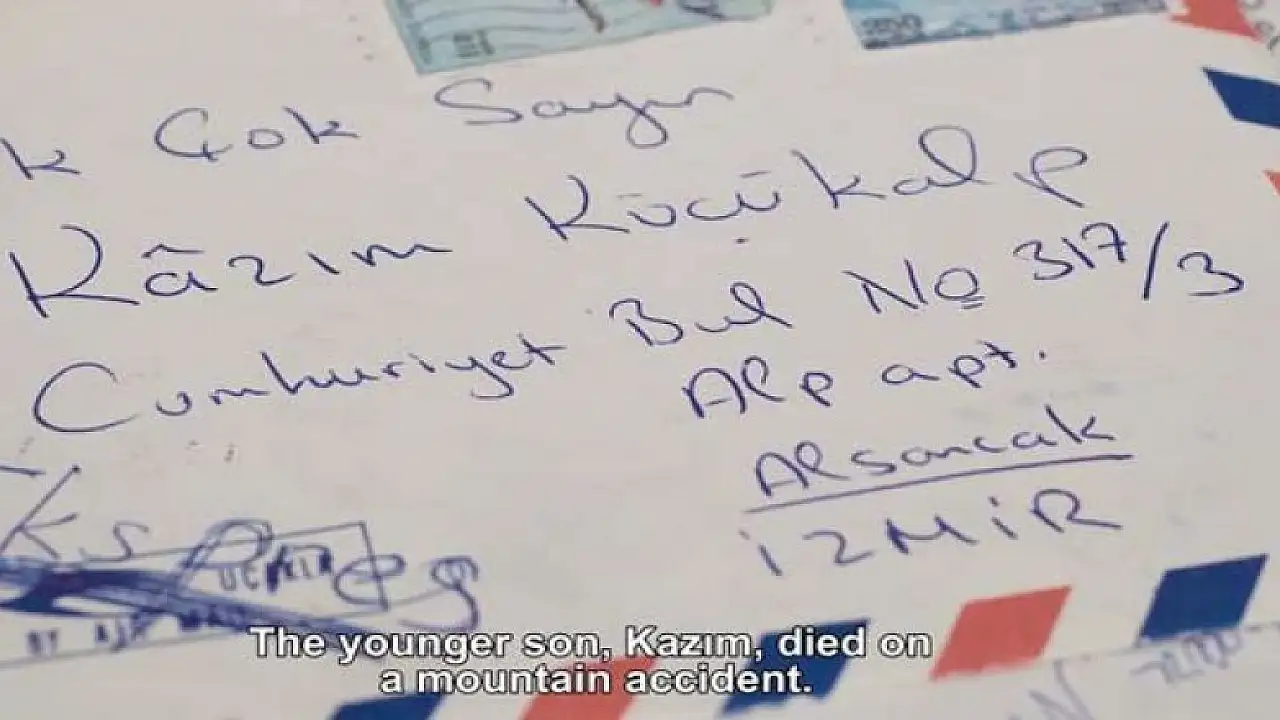 k Çok Sayın
Kâzım Küçükalp
Cumhuriyet Bul No 317/3
Alp apt.
Alsancak
İZMİR
BY AIR MAIL
The younger son, Kazım, died on
a mountain accident.